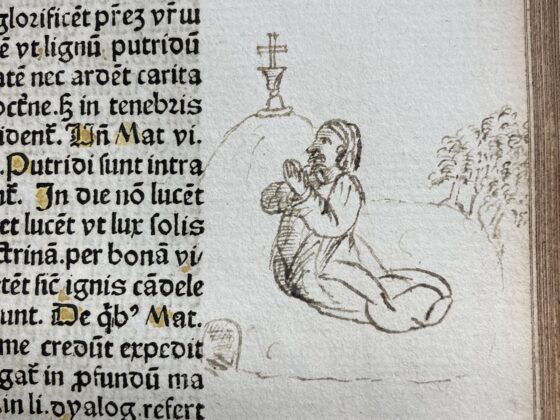 glorificēt pr̄eꝫ vr̄m
ē vt lignū putridū
atē nec ardēt carita
octr̄ne. ꝫ in tenebris
ident̄. Un̄ Mat vi.
. Putridi sunt intra
nt̄. In die nō lucēt
et lucēt vt lux solis
ctrinā. per bonā vi⸗
tēt sic̄ ignis cādele
unt. De qb᷒ Mat.
me credūt expedit
gat̄ in ꝓfundū ma
. in li. dyalog. refert